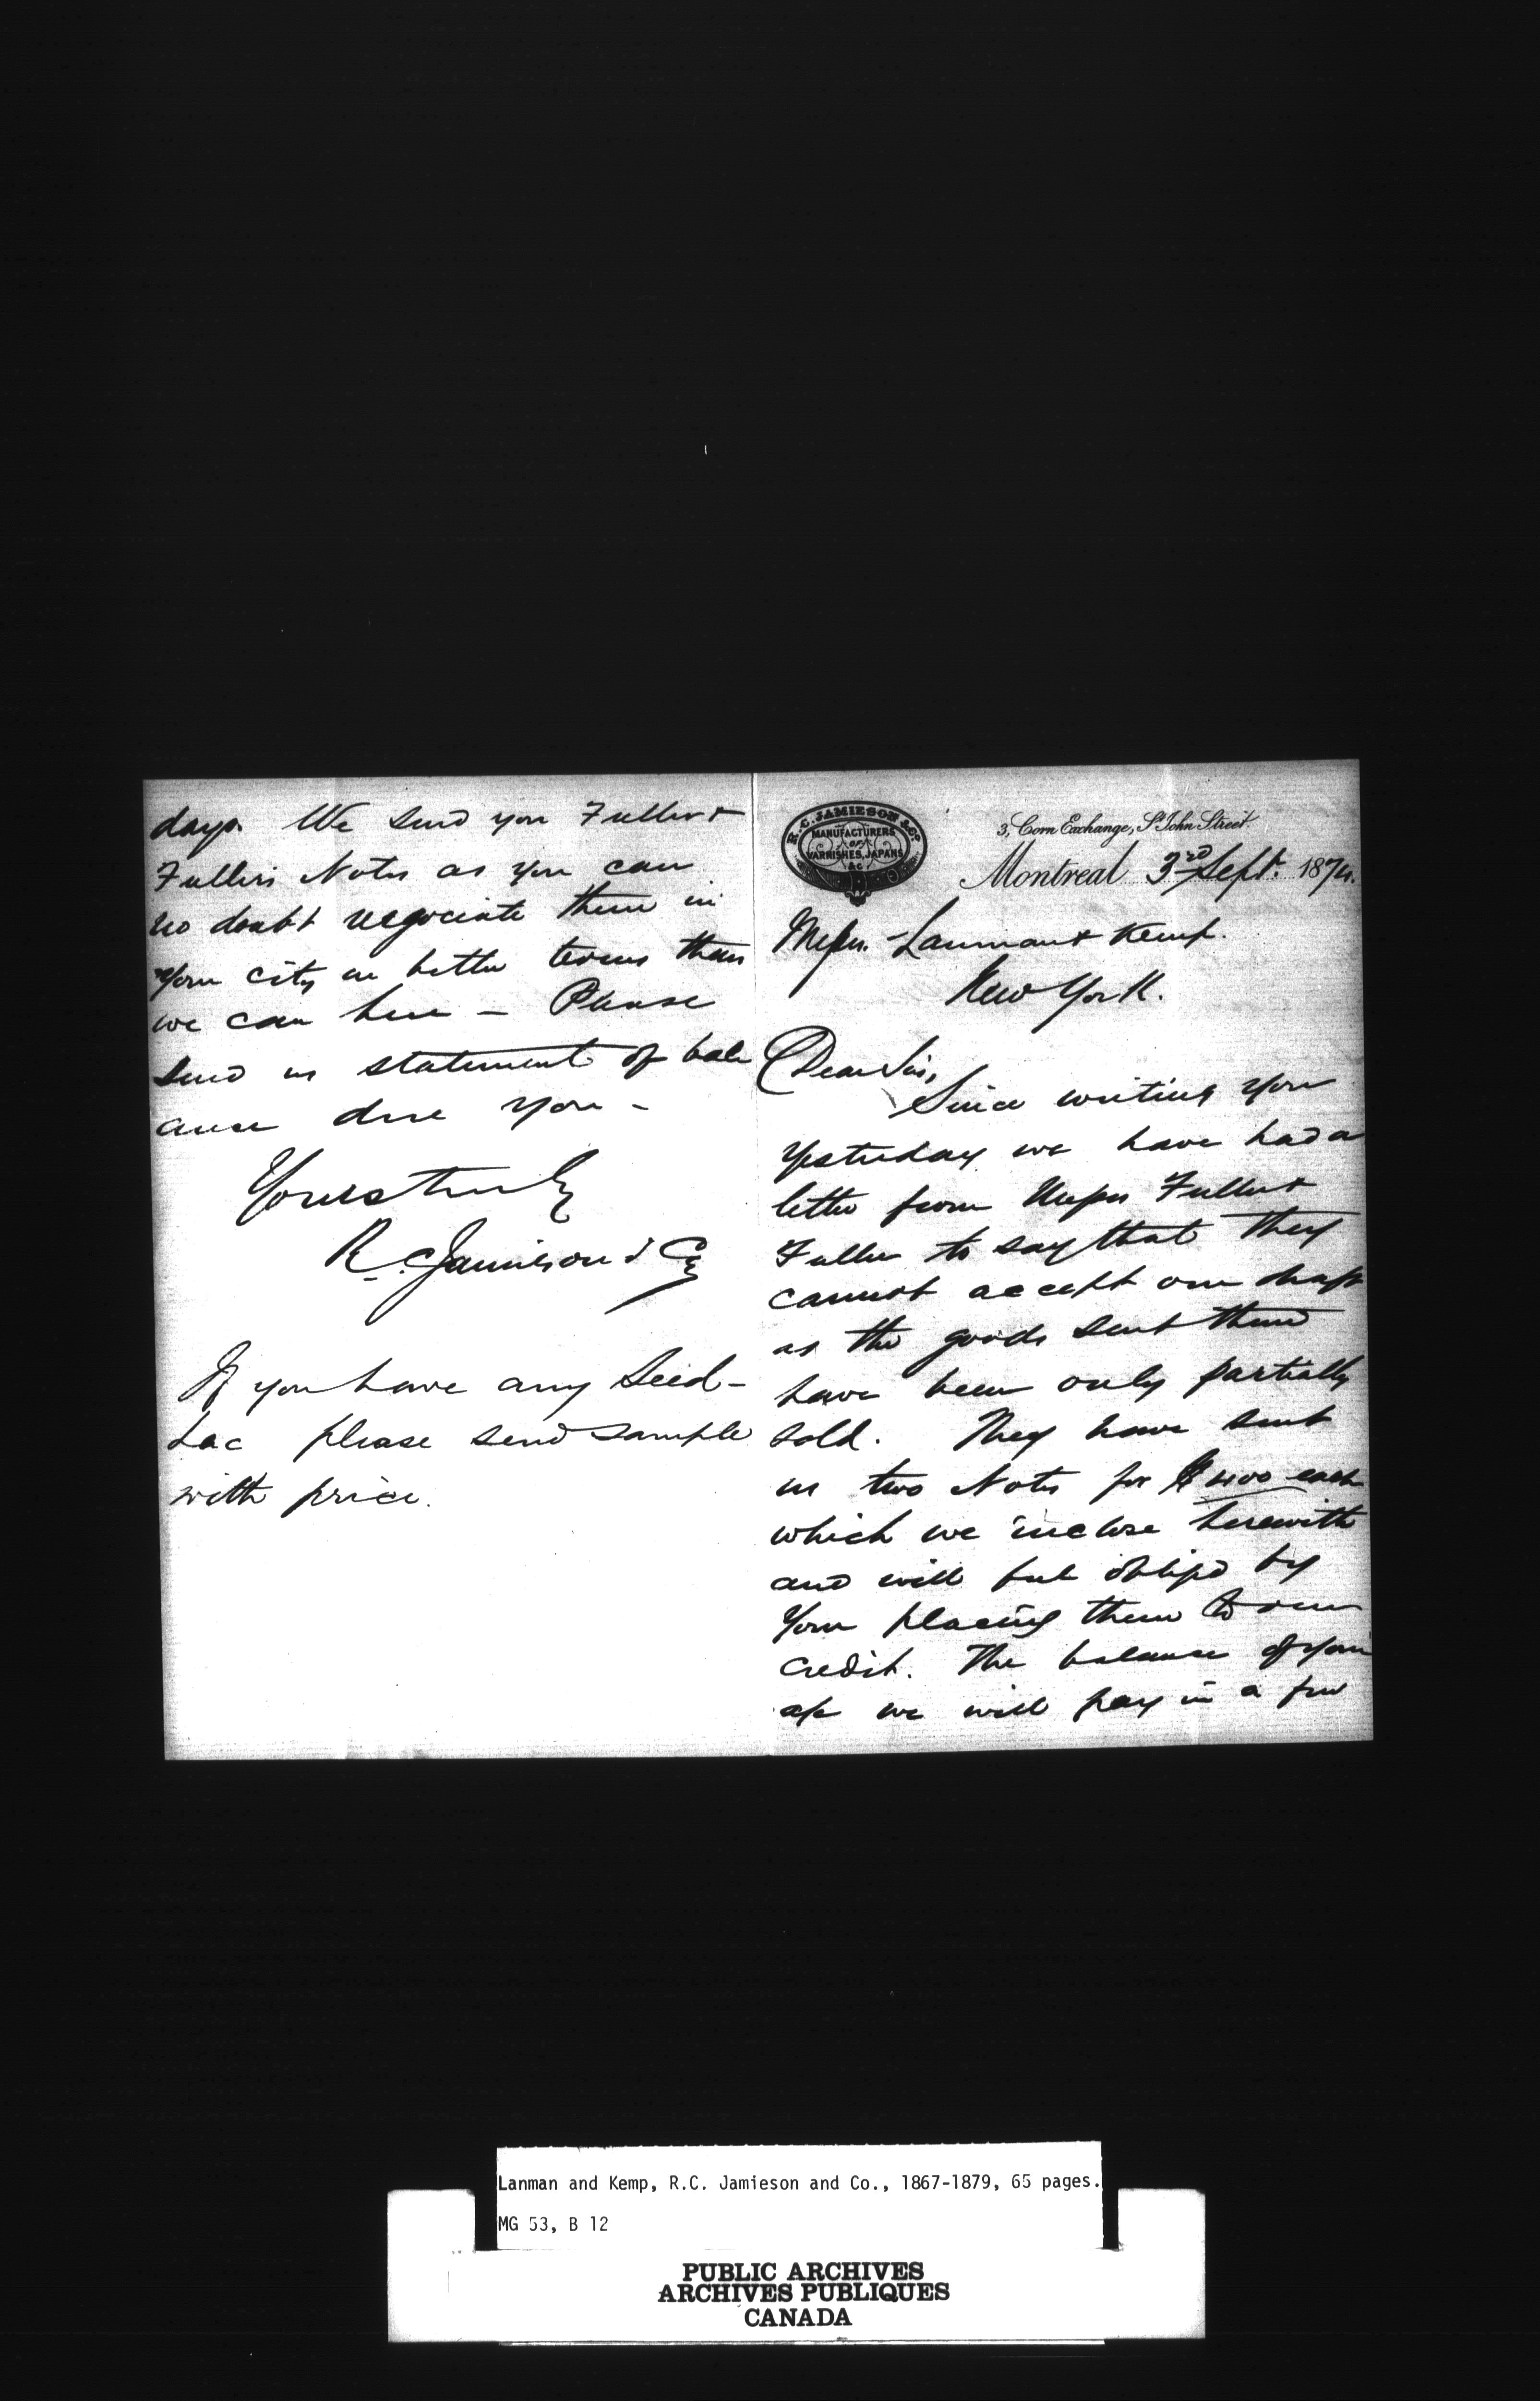 R. C. JAMIESON & Co.
MANUFACTURERS
OF
VARNISHES, JAPANS
&c
3, Corn Exchange, St John Street.
Montreal 3rd Sept. 1874.
Messrs. Lanman & Kemp.
New York.
Dear Sirs,
Since writing you
yesterday we have had a
letter from Messrs Fuller &
Fuller to say that they
cannot accept our draft
as the goods sent them
have been only partially
sold. They have sent
us two Notes for $400 each
which we inclose herewith
and will feel obliged by
your placing them to our
credit. The balance of your
a/c we will pay in a few
days. We send you Fuller &
Fullers Notes as you can
no doubt negociate them in
your city on better terms than
we can here – Please
send us statement of bal
ance due you –
Yours truly
R. C. Jamieson & Co
If you have any Seed-
Lac please send sample
with price.
Lanman and Kemp, R.C. Jamieson and Co., 1867-1879, 65 pages.
MG 53, B 12
PUBLIC ARCHIVES
ARCHIVES PUBLIQUES
CANADA